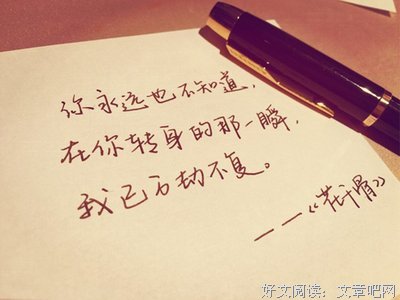 你永远也不知道，
在你转身的那一瞬，
我已万劫不复。
——《花千骨》
好文阅读：文章吧网